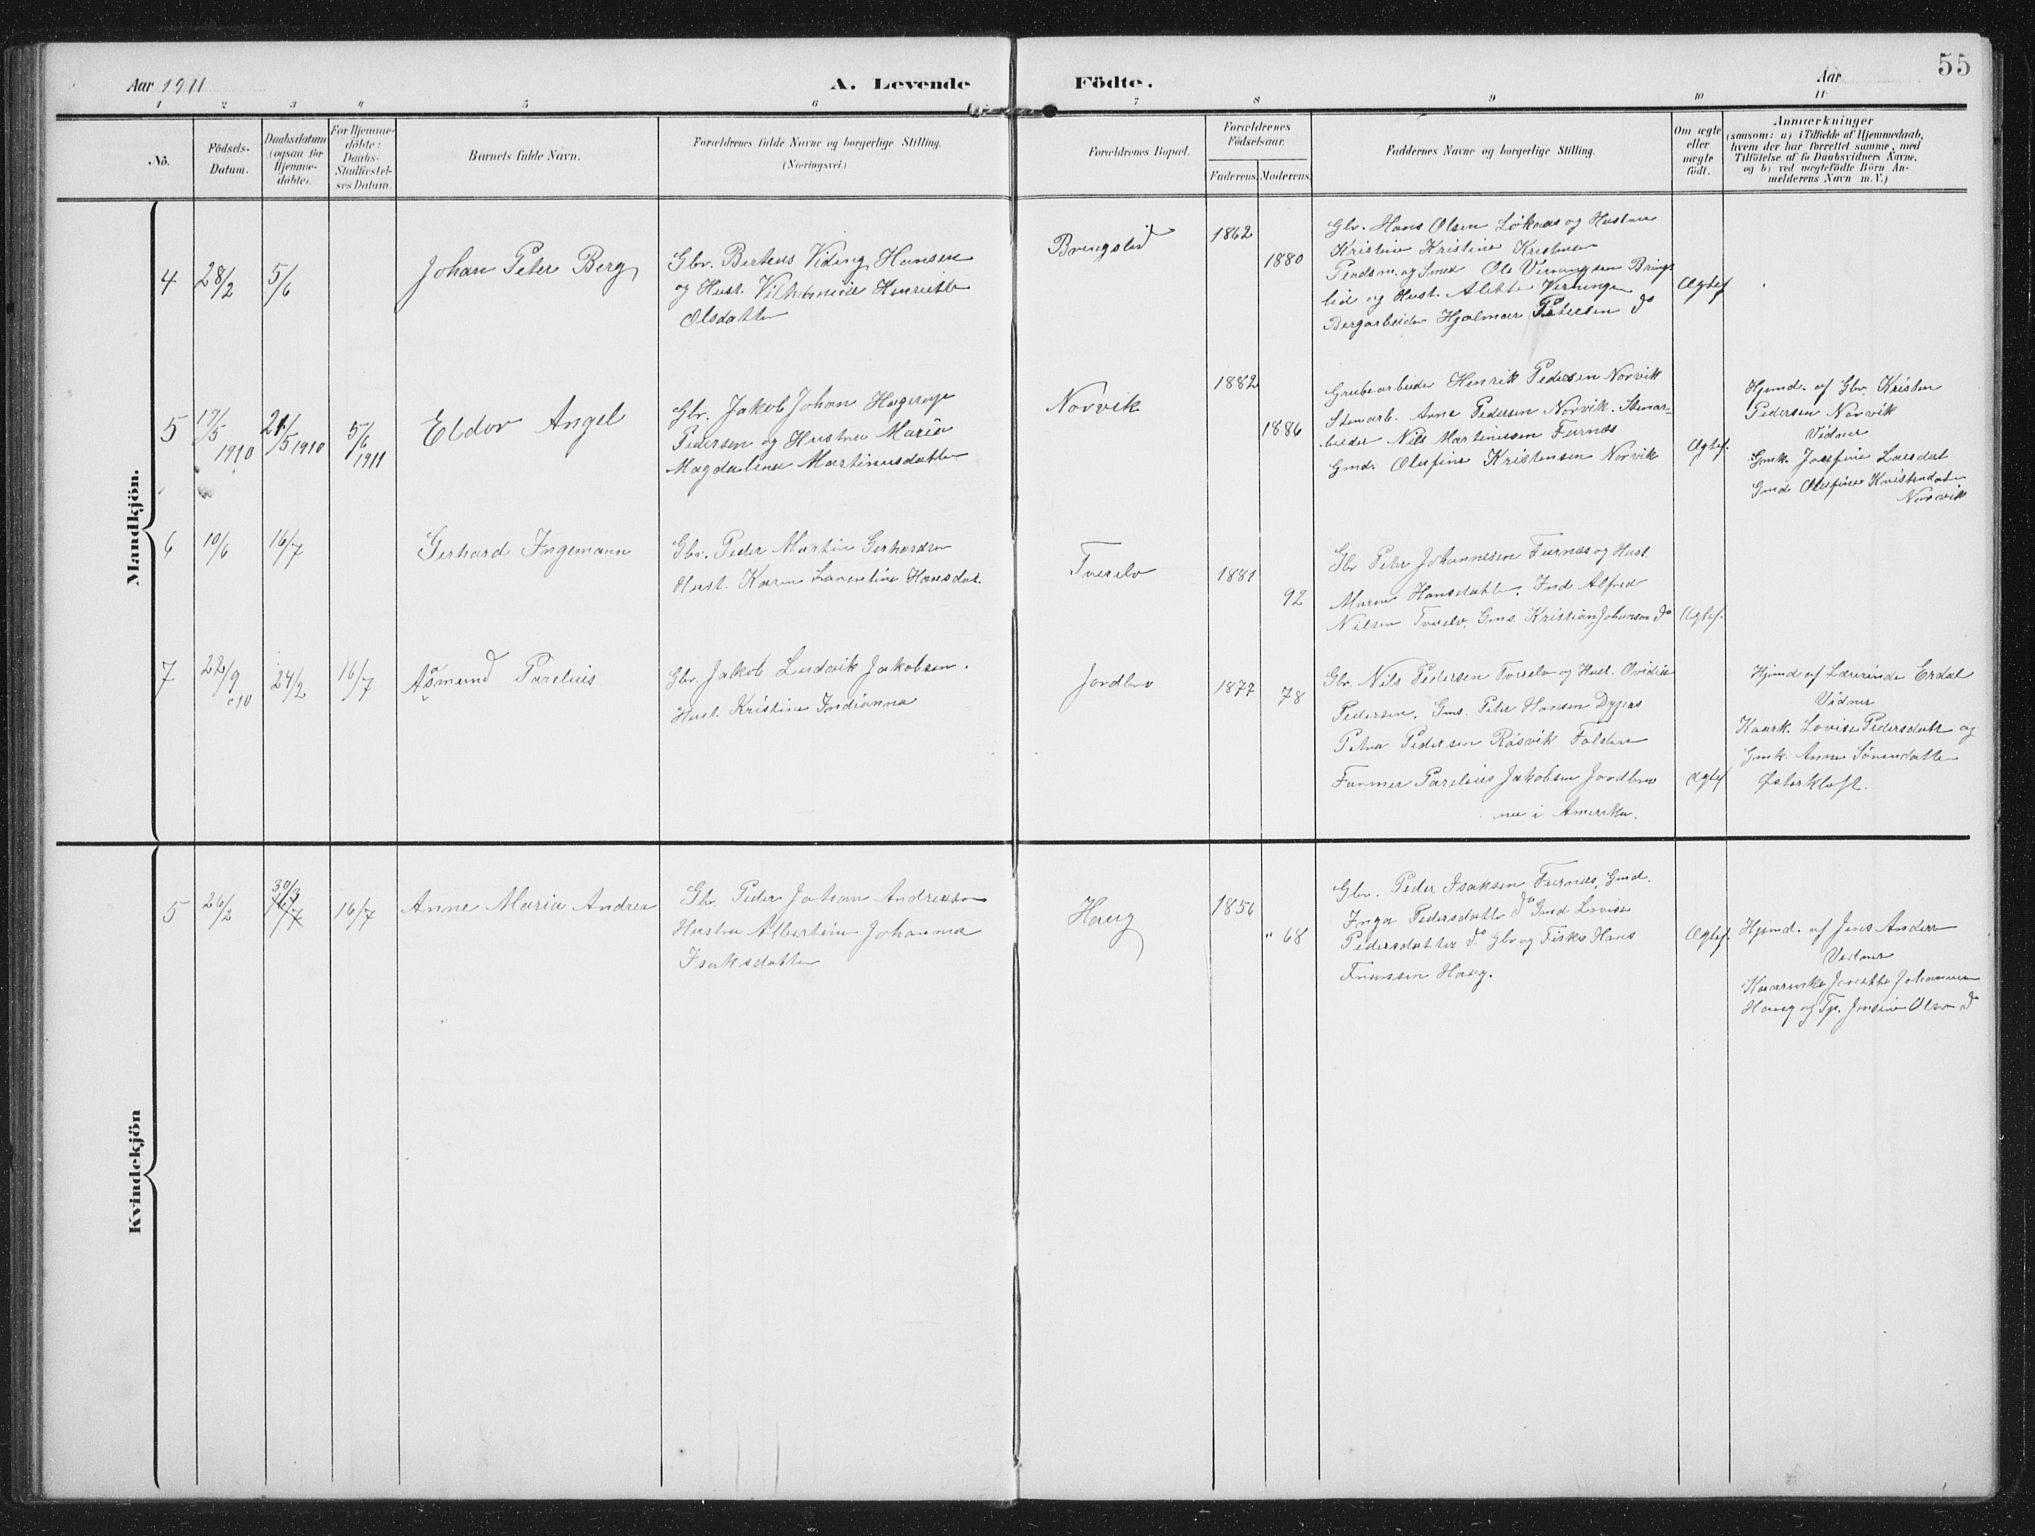 55
Aar 1911
A. Levende Födte.
Aar
1 2 3 4 5 6 7 8 9 10 11
No.
Födsels-Datum.
Daabsdatum (ogsaa for Hjemme-döbte).
For Hjemme-döbte: Daabs-Stadfæstel-ses Datum.
Barnets fulde Navn.
Forældrenes fulde Navne og borgerlige Stilling.
(Næringsvei.)
Forældrenes Bopæl.
Forældrenes Födselsaar.
Faderens. Moderens.
Faddernes Navne og borgerlige Stilling.
Om ægte eller uægte födt.
Anmærkninger
(saasom: a) i Tilfælde af Hjemmedaab,
hvem der har forrettet samme, med
Tilföielse af to Daabsvidners Navne,
og b) ved uægtefödte Börn An-
melderens Navn m. V.)
Mandkjön.
4 28/2 5/6 Johan Peter Berg
Gbr. Berteus Viding Hansen
og Hust. Vilhelmine Henriette
Olsdatter
Bringslid
1862
1880
Gbr. Hans Olsen Løknes og Hustru
Kristine Kristine Kristense
Pladsm. og Smed Ole Verningsen Brings
lid og Hust. Alette Verningse
Bergarbeider Hjalmar Petersen do
Ægtef
5 17/5 1910 21/5 1910 5/6 1911 Eldor Angel
Gbr. Jakob Johan Hagerup
Pedersen og Hustru Maria
Magdalena Martinusdatter
Norvik
1882
1886
Grubearbeider Henrik Pedersen Norvik
Stenarb. Arne Pedersen Norvik. Stenar-
beider Nils Martinussen Furnes
Gmd. Olufine Kristensen Norvik
Ægtef.
Hjemd. af Gbr. Kristen
Pedersen Norvik
Vidner
Gmk. Josefine Larsdat
Gmd Olufine Kristendat
Norvik
6 10/6 16/7 Gerhard Ingemann
Gbr. Peder Martin Gerhardsen
Hust. Karen Larentine Hansdat.
Tverelv
1881
92
Gbr Peter Johannesen Furnes og Hust
Maren Hansdatter. Ind Alfred
Nilsen Tverelv. Gms. Kristian Johansen do
Ægtef.
7 22/9 10 24/2 16/7 Asmund Parelius
Gbr. Jakob Ludvik Jakobsen.
Hust. Kristine Indianna
Jordbro
1877
78
Gbr. Nils Pedersen Tverelv og Hust. Ovidia
Pedersen. Gms. Peter Hansen Dypaas
Petra Pedersen Røsvik Folden
Farmer Parelius Jakobsen Jordbro
nu i Amerika.
Ægtef
Hjemd af Lærerinde Erdal
Vidner
Kaark. Lovise Pedersdatt og
Gmk. Anne Sørensdatte
Østerkløft.
Kvindekjön
5 26/2 30/3 16/7 16/7 Anne Maria Andrea
Gbr. Peder Johan Andreasen
Hustru Albertine Johanna
Isaksdatter
Haug
1856
" 68
Gbr. Peder Isaksen Furnes, Gmd.
Inga Pedersdatter do Gmd Lovise
Pedersdatter do. Gbr og Fisker Hans
Haug.
Ægtef.
Hjemd. af Jens Andersn
Vidner
Jonette Johannesen
Haug og Tp. Jensine Olsen do